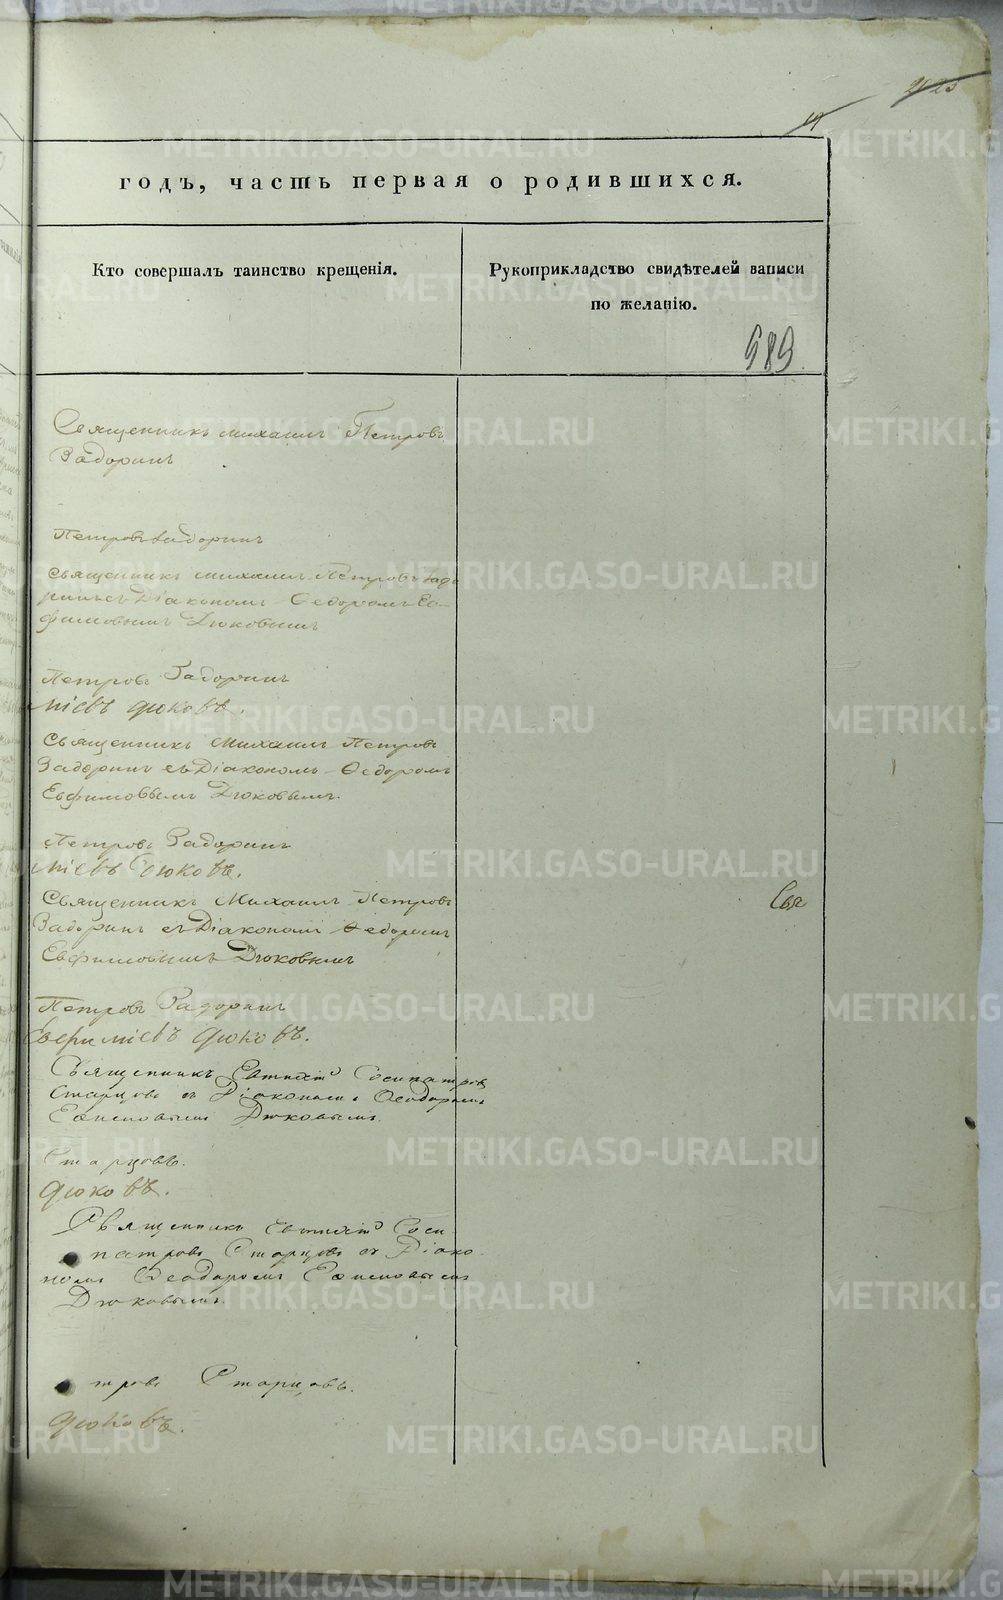 годъ, часть первая о родившихся.
Кто совершалъ таинство крещенія.
Рукоприкладство свидѣтелей записи
по желанію.
989
Священникъ Михаилъ Петровъ
Задоринъ
Петровъ Задоринъ
Священникъ Михаилъ Петровъ Задо
ринъ съ Діакономъ Ѳедоромъ Ев-
фимовымъ Дюковымъ
Петровъ Задоринъ
міевъ Дюковъ.
Священникъ Михаилъ Петровъ
Задоринъ съ Діакономъ Ѳедоромъ
Евфимовымъ Дюковымъ.
Петровъ Задоринъ
міевъ Дюковъ.
Священникъ Михаилъ Петровъ
Задоринъ съ Діакономъ Ѳедоромъ
Евфимовымъ Дюковымъ
Свя
Петровъ Задоринъ
Евфиміевъ Дюковъ.
Священникъ Евтихій Сосипатровъ
Старцовъ съ Діакономъ Ѳеодоромъ
Дюковымъ.
Старцовъ.
Дюковъ.
Священникъ Евтихій Соси
патровъ Старцовъ съ Діако
номъ Ѳеодоромъ
Дюковымъ
тровъ Старцовъ.
Дюковъ.
METRIKI.GASO-URAL.RU